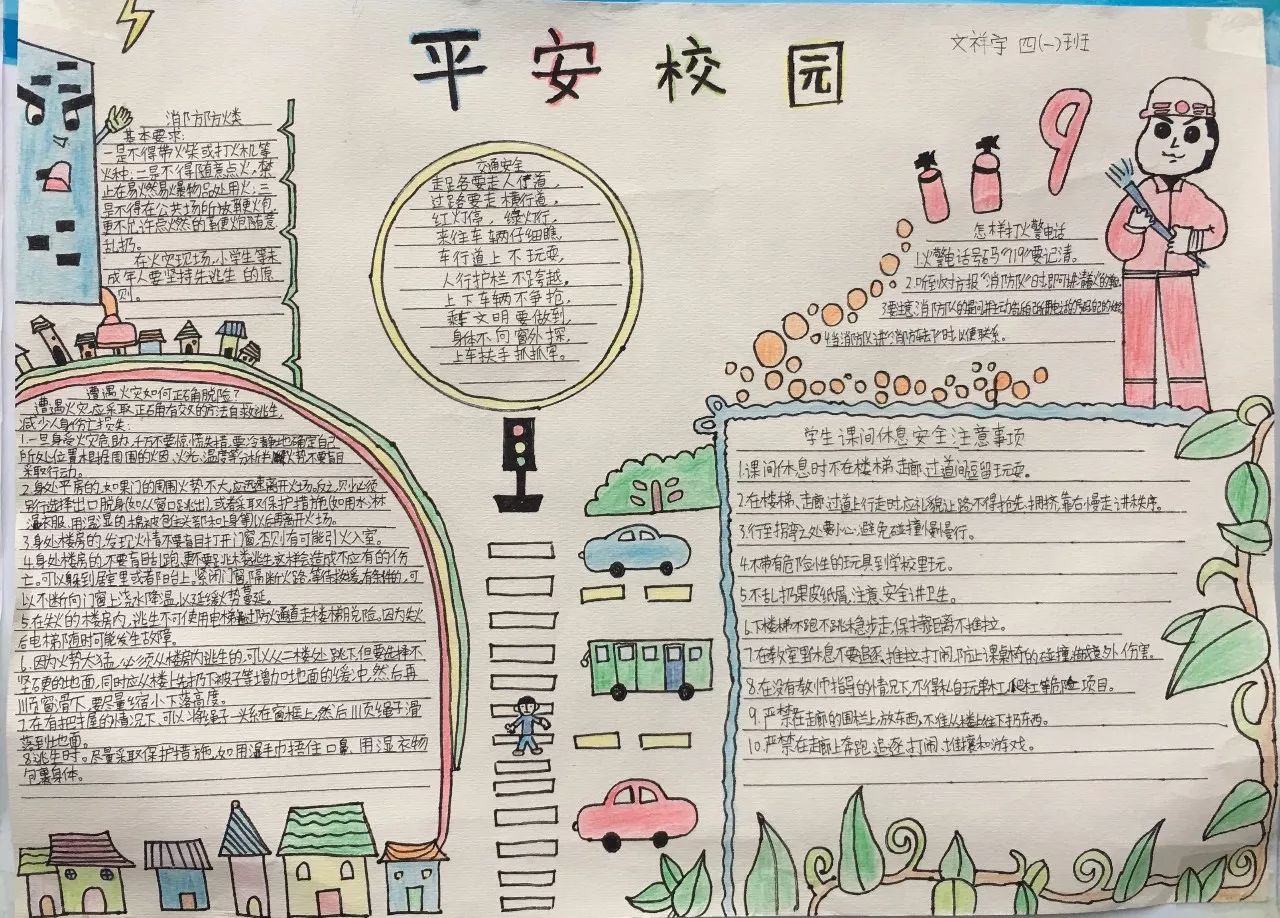 平安校园
文祥宇 四(一)班
消防防火楼
基本要求:
一是不得带火柴或打火机等
火种;二是不得随意点火,禁
止在易燃易爆物品处用火;三
是不得在公共场所放鞭火包,
更不允许点燃的鞭炮随意
乱扔。
在火灾现场,小学生等未
成年人要坚持先逃生的原
则。
交通安全
走足各要走人行道,
过路要走横行道,
红灯停,绿灯行,
来往车辆仔细瞧
车行道上不玩耍,
人行护栏不跨越。
上下车辆不争抢,
乘文明要做到,
身体不向窗外探,
上车扶手抓抓牢。
119
怎样打火警电话
1.火警电话号码"119"要记清。
2.听到对方报"消防队"日时即可讲清
3.要注意消防队的提问
4.当消防队讲消防车 时以便联系。
遭遇火灾如何正确脱险?
遭遇火灾,应采取正确有效的方法自救逃生,
减少人身伤亡损失:
1.一旦身受火灾危胁,千万不要惊慌失措,要冷静地确定自己
所处位置,根据周围的烟、火光、温度等分析判断火势,不要盲目
采取行动。
2.身处平房的,如果门的周围火势不大,应迅速离开火场。反之,则必须
另行选择出口脱身(如从窗口跳出),或者采取保护措施(如用水淋
湿衣服、用湿湿的棉被包住头部和上身等)以后再离开火场。
3.身处楼房的,发现火情不要盲目打开门窗,否则有可能引火入室。
4.身处楼房的,不要盲目乱跑、更不要跳楼逃生,这样会造成不应有的伤
亡。可以躲到居室里或者阳台上。紧闭门窗,隔断火路,等待救援。有条件的,可
以不断向门窗上浇水降温,以延缓火势蔓延。
5.在失火的楼房内,逃生不可使用电梯,通过防火通道走楼梯脱险。因为失火
后电梯随时可能发生故障。
6.因为火势太猛,必须从楼房内逃生的,可以从二楼处跳下,但要选择不
坚硬的地面,同时应从楼上先扔下被子等增加地面的缓冲,然后再
顺窗滑下,要尽量缩小下落高度。
7.在有把握的情况下,可以将绳子一头系在窗框上,然后顺绳子滑
落到地面。
8.逃生时。尽量采取保护措施,如用湿毛巾捂住口鼻、用湿衣物
包裹身体。
学生课间休息安全注意事项
1.课间休息时不在楼梯、走廊、过道间逗留玩耍。
2.在楼梯、走廊、过道上行走时应礼貌让路,不得抢先、拥挤,靠右慢走讲秩序。
3.行至拐弯处要小心,避免碰撞慢慢行。
4.不带有危险性的玩具到学校里玩。
5.不乱扔果皮纸屑,注意安全讲卫生。
6.下楼梯不跑不跳稳步走,保持距离不推拉。
7.在教室里休息不要追逐、推拉、打闹,防止课桌椅的碰撞,做意外伤害。
8.在没有教师指导的情况下,不得私自玩单杠、爬杠等危险项目。
9.严禁在走廊的围栏上,放东西,不准从楼上往下扔东西。
10.严禁在走廊上奔跑、追逐、打闹、推攘和游戏。